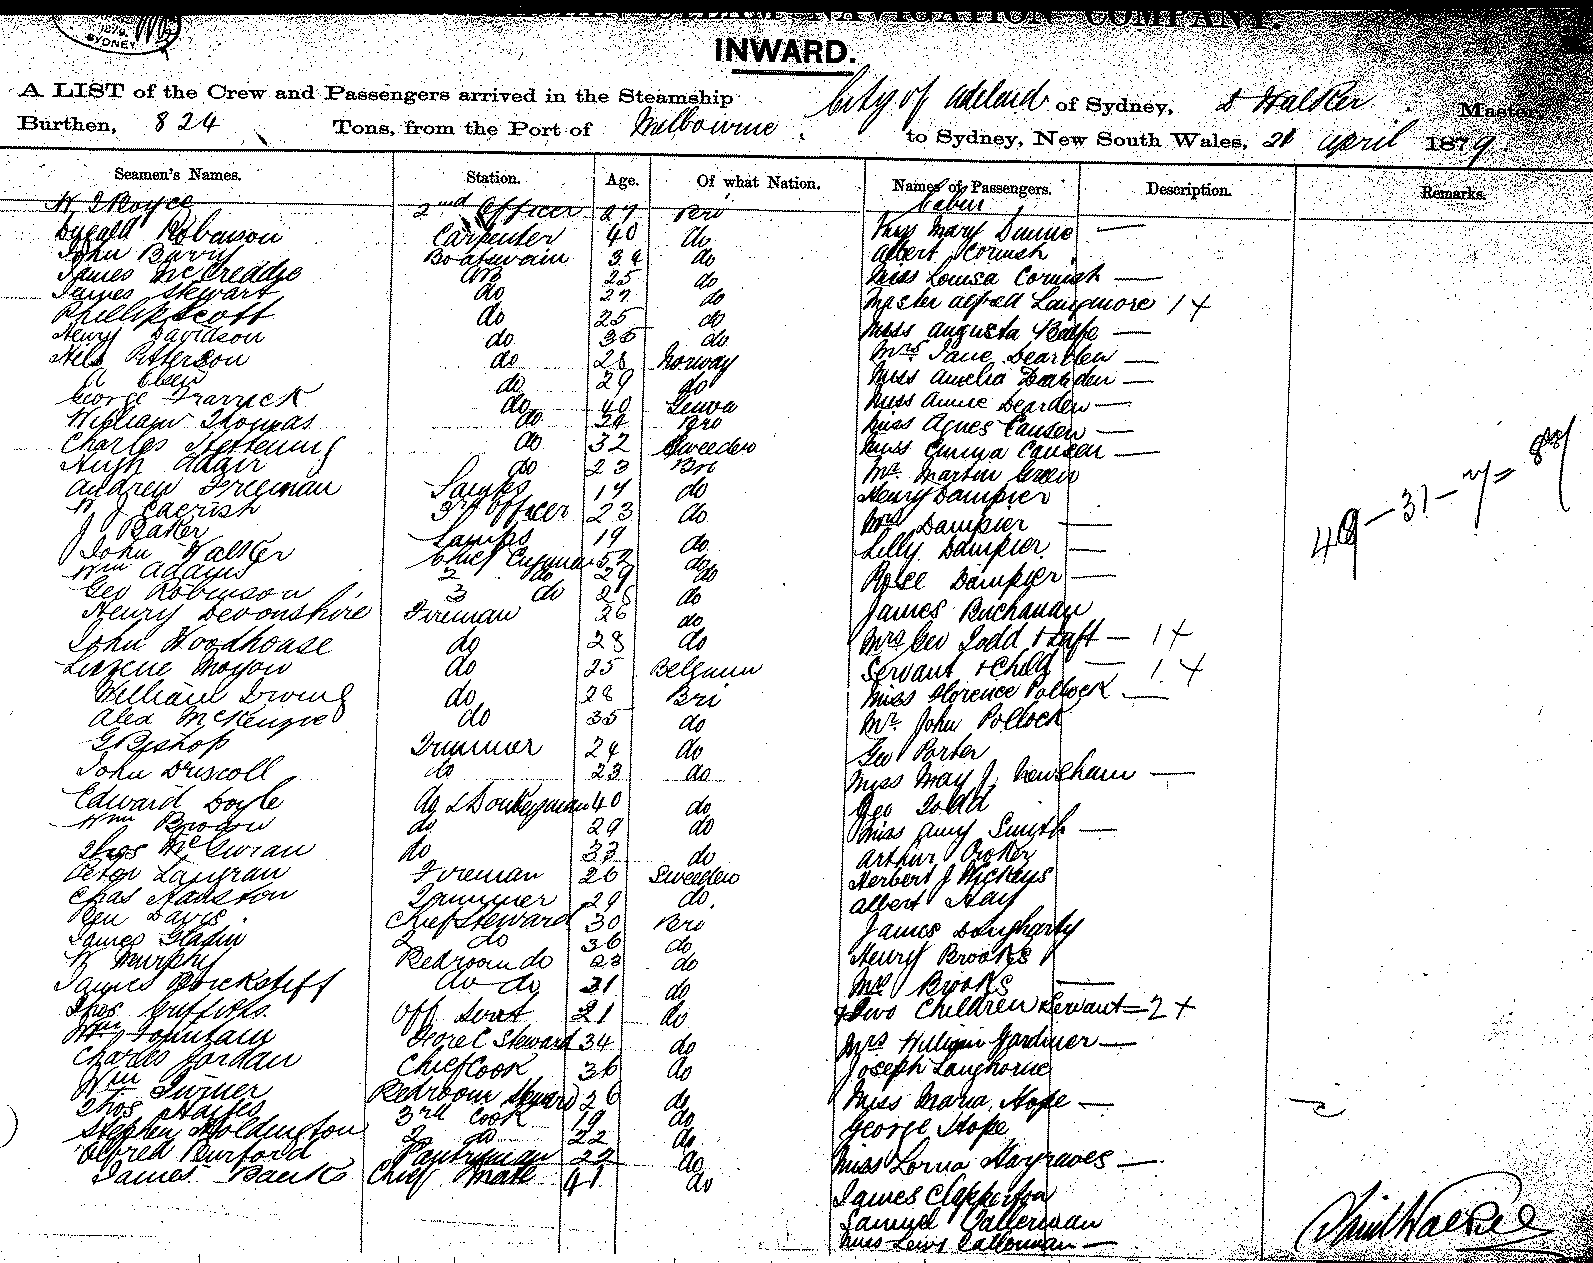 NAVIGATION COMPANY.
SYDNEY
INWARD.
A LIST of the Crew and Passengers arrived in the Steamship City of Adelaid of Sydney, D Walker Master,
Burthen, 824 Tons, from the Port of Melbourne, to Sydney, New South Wales, 21 April 1879
Seamen's Names. Station. Age. Of what Nation. Names of Passengers. Description. Remarks.
Cabin
W J Royce 2nd Officer 27 Bri Miss Mary Dunne —
Dugald Robinson Carpenter 40 do Albert Cornish
John Barry Boatswain 34 do Miss Louisa Cornish —
James McCreddie AB 25 do Master Alfred Langmore 1 +
James Stewart do 27 do Miss Augusta —
Phillip Scott do 25 do Mrs Jane Dearden —
Henry Davidson do 35 do Miss Amelia Dearden —
Nels Peterson do 28 Norway Miss Annie Dearden —
do 29 do Miss Agnes Causen —
George do 40 Genoa Miss Emma Causen —
William Thomas do 24 Bro Mr Martin Green
Charles do 32 Sweeden Henry Dampier
Hugh Adair do 23 Bri Mrs Dampier —
Andrew Freeman Lamps 17 do Lilly Dampier —
W J 3rd Officer 23 do Rose Dampier —
J Baker Lamps 19 do James Buchanan
John Walker Chief 52 do Mrs Geo Todd + — 1 +
Wm Adams 2 do 29 do Servant + Child — 1 +
Geo Robinson 3 do 28 do Miss Florence Pollock —
Henry Devonshire Fireman 26 do Mr John Pollock
John Woodhouse do 28 do Geo Porter
do 25 Belgium Miss May J Newsham —
William Irving do 28 Bri Geo Todd
Alex McKenzie do 35 do Miss Amy Smith —
G Bishop Trimmer 24 do Arthur Croker
John Driscoll do 23 do Herbert J
Edward Doyle do & Donkeyman 40 do Albert Hay
Wm do 29 do James Dougharty
Thos McGuran do 33 do Henry Brooks
Peter Langran Fireman 26 Sweeden Mrs Brooks —
Chas Trimmer 29 do. + Two Children Servant — 2 +
Ben Davis Chief Steward 30 Bro Mrs William Gardiner —
James Gladin 2 do 36 do Joseph Langhorne
W Murphy Bedroom do 23 do Miss Maria Hope —
James Brickstiff do do 31 do George Hope
Thos Griffiths Off Servt 21 do Miss Lorna Hargraves —
Wm Fountain Fore C Steward 34 do James Clapperton
Charles Jordan Chief Cook 36 do Samuel Callerman
Wm Turner Bedroom Steward 26 do Miss Callerman —
Thos Hayes 3rd Cook 19 do
Stephen Holdington 2 do 22 do
Alfred Burford Pantryman 22 do
James Banks Chief Mate 41 do
49 — 31 — 7 =
David Walker